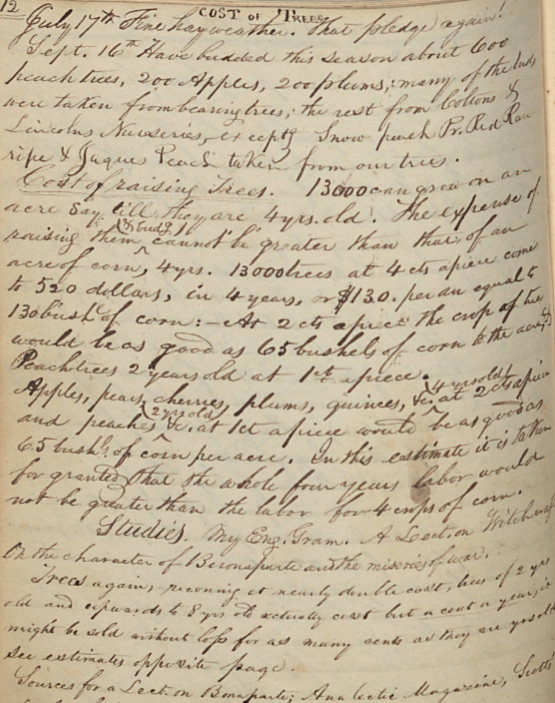 12 COST OF TREES
July 17th Fine hayweather. That pledge again!
Sept. 16th Have budded this season about 600
peach trees, 200 Apples, 200 plums; many of the buds
were taken from bearing trees; the rest from Cottons &
Lincolns Nurseries, except Snow peach Pr. Red Rare
ripe & Jaques Peach taken from our trees.
Cost of raising Trees. 13000 can grow on an
acre say till they are 4 yrs. old. The expense of
raising them (& buds) cannot be greater than that of an
acre of corn, 4 yrs. 13000 trees at 4 cts apiece come
to 520 dollars, in 4 years, or $130. per an equal to
130 bush. of corn:- At 2 cts apiece the crop of tre
would be as good as 65 bushels of corn to the acre, &
Peach trees 2 years old at 1 ct. apiece.
Apples, pears, cherries, plums, quinces, &c. 4 yrs old at 2 cts apiece
and peaches &c. 2 yrs old at 1 ct apiece would be as good as
65 bush. of corn per acre. In this estimate it is taken
for granted that the whole four years labor would
not be greater than the labor for 4 crops of corn.
Studies. My Eng. Gram. A Lect. on Witchcraft
On the character of Buonaparte and the miseries of war.
Trees again; reconing at nearly double cost, trees of 2 yrs
old and upwards to 8 yrs old actually cost but a cent a year, &
might be sold without loss for as many cents as they are yrs old
see estimates opposite page.
Sources for a Lect. on Bonaparte; Analectic Magazine, Scotts'